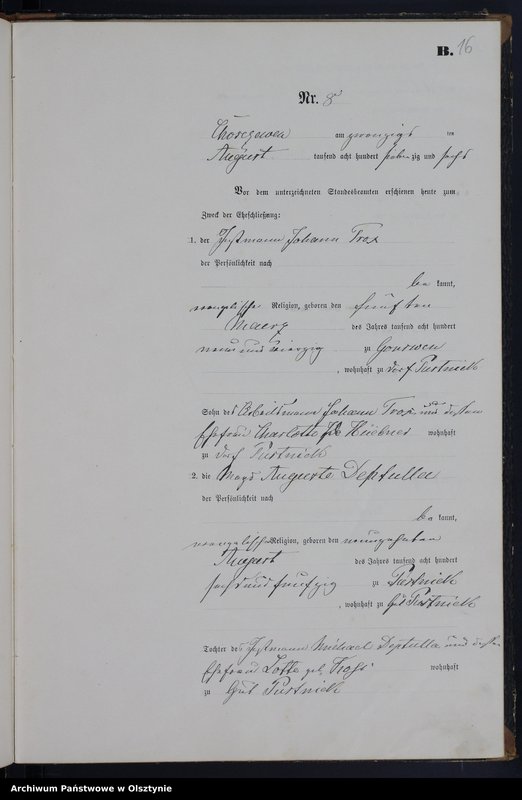 B. 16
Nr. 8
Choszewen am zwanzigs ten
August tausend acht hundert sieben zig und sechs
Vor dem unterzeichneten Standesbeamten erschienen heute zum
Zweck der Eheschließung:
1. der Instmann Johann Trox
der Persönlichkeit nach
be kannt,
evangelische Religion, geboren den fünften
Maerz des Jahres tausend acht hundert
neun und vierzig zu
, wohnhaft zu dorf Pustnick
Sohn des Arbeitsmann Johann Trox und dessen
Ehefrau Charlotte geb Huebner wohnhaft
zu dorf Pustnick
2. die Magd Auguste Deptulla
der Persönlichkeit nach
be kannt,
evangelische Religion, geboren den neunzehnten
August des Jahres tausend acht hundert
sechs und fünfzig zu Pustnick
, wohnhaft zu Gut Pustnick
Tochter des Instmann Michael Deptulla und dessen
Ehefrau Lotte geb. wohnhaft
zu Gut Pustnick
Archiwum Państwowe w Olsztynie